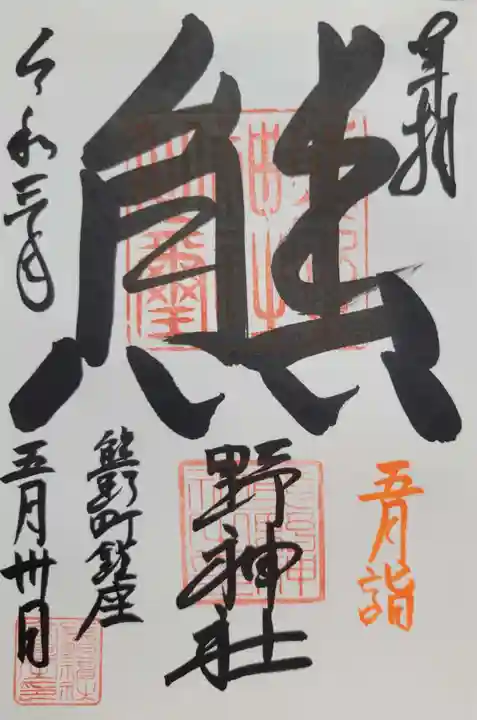 奉拝
五月詣
熊
野神社
熊野町鎮座
令和三年
五月卅日